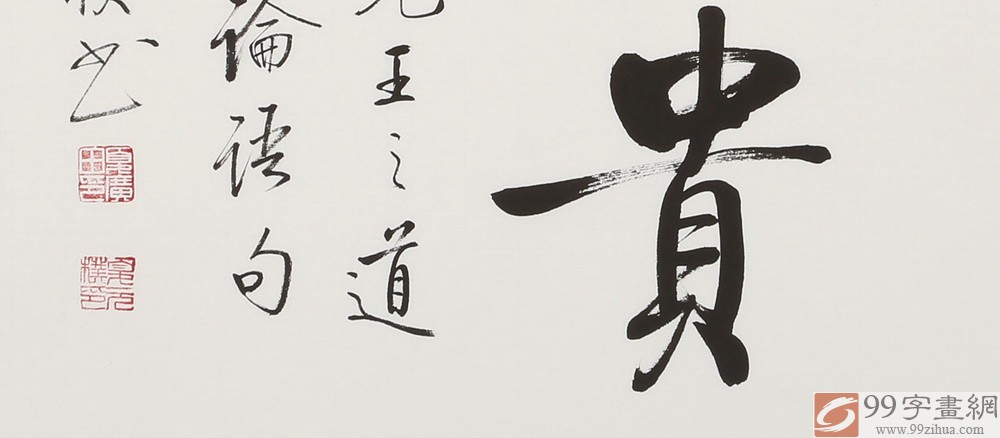 貴
先王之道
論語句
書
99字畫網
www.99zihua.com